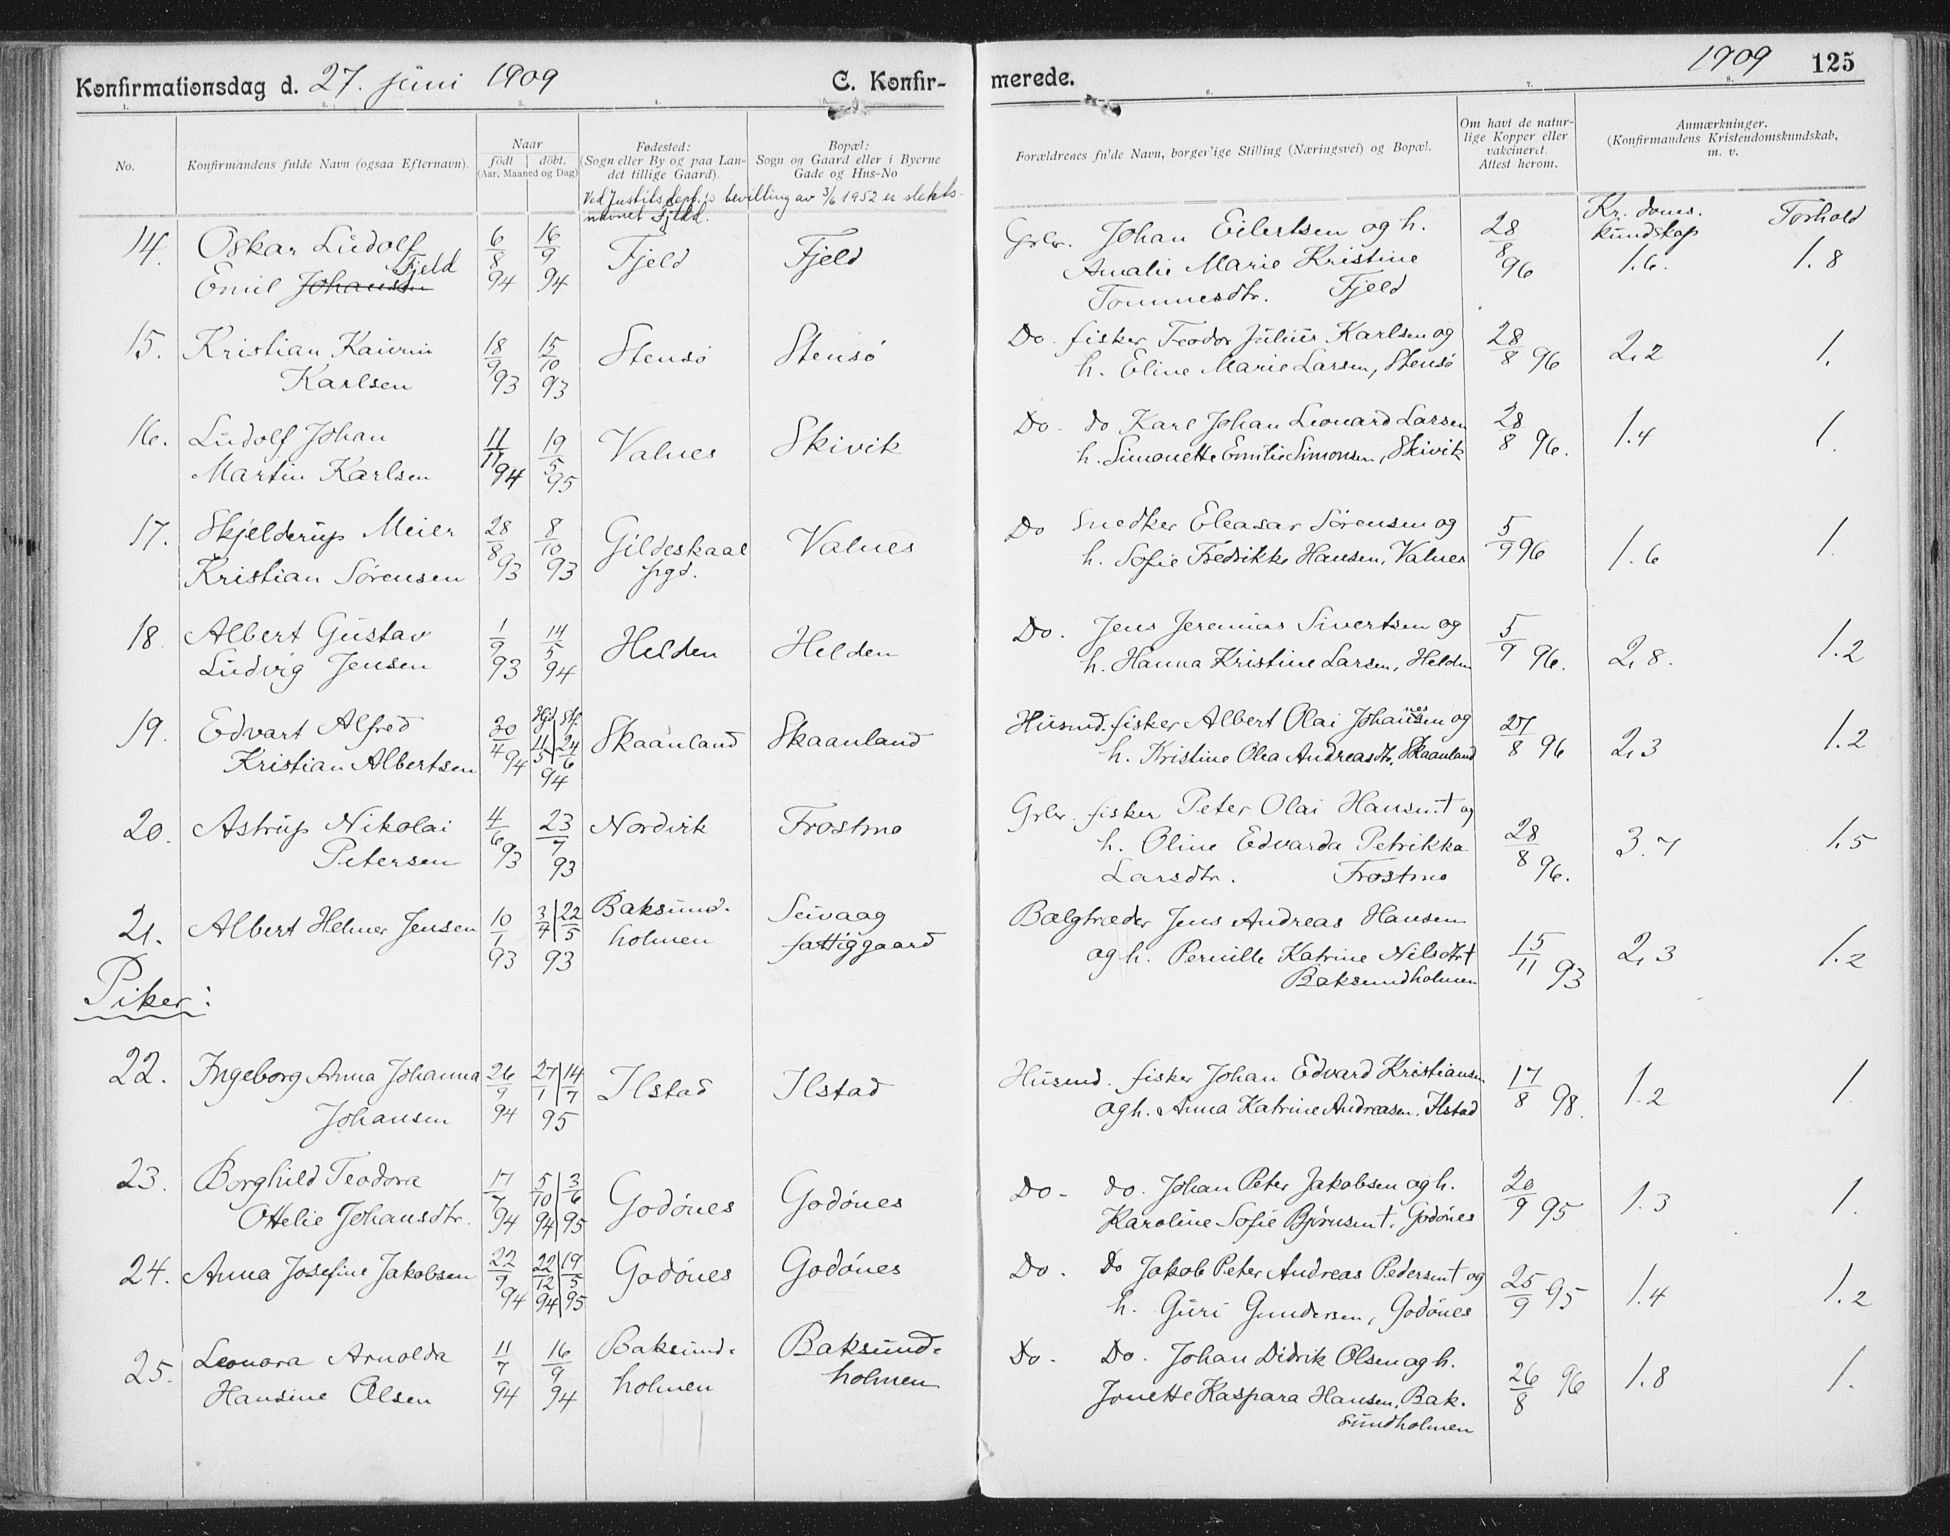 Konfirmationsdag d. 27. juni 1909 C. Konfir-
merede. 1909 125
1. 2. 3. 4. 5. 6. 7. 8.
No.
Konfirmandens fulde Navn (ogsaa Efternavn).
Naar
født | döbt.
(Aar, Maaned og Dag)
Fødested:
(Sogn eller By og paa Lan-
det tillige Gaard).
Bopæl:
Sogn og Gaard eller i Byerne
Gade og Hus-No
Forældrenes fulde Navn, borgerlige Stilling (Næringsvei) og Bopæl.
Om havt de natur-
lige Kopper eller
vakcineret.
Attest herom.
Anmærkninger.
(Konfirmandens Kristendomskundskab,
m. v.
Ved Justitsdept.s bevilling av 3/6 1952 er slekts-
navnet Fjeld.
Kr. doms. Forhold
kundskap
14. Oskar Ludolf 6/8 16/9 Fjeld Fjeld Grbr. Johan Eilertsen og h. 28/8
Fjeld
Emil Johansen 94 94 Amalie Marie Kristine 96 1.6. 1.8
Tommesdtr. Fjeld
15. Kristian Kaivrin 18/9 15/10 Stensø Stensø Do. fisker Teodor Julius Karlsen og 28/8 96 2,2 1.
Karlsen 93 93 h. Eline Marie Larsen, Stensø
16. Ludolf Johan 11/11 19/5 Valnes Skivik Do - do Karl Johan Leonard Larsen 28/8 96. 1.4 1
Martin Karlsen 94 95 h. Simonette Emilie Simonsen, Skivik
17. Skjelderup Meier 28/8 8/10 Gildeskaal Valnes Do Snedker Eleasar Sørensen og 5/9 96 1.6 1.
Kristian Sørensen 93 93 prgd. h. Sofie Fredrikke Hansen, Valnes
18. Albert Gustav 1/9 14/5 Helden Helden Do. Jens Jeremias Sivertsen og 5/9 96. 2,8. 1.2
Ludvig Jensen 93 94 h. Hanna Kristine Larsen, Helden
19. Edvart Alfred 30/4 Hjd. Stf. Skaanland Skaanland Husmd. fisker Albert Olai Johansen og 27/8 96 2,3 1.2
Kristian Albertsen 94 11/5 | 24/6 94 h. Kristine Olea Andreasdtr, Skaanland
20. Astrup Nikolai 4/6 23/7 Nordvik Frostmo Grbr. fisker Peter Olai Hansen† og 28/8 96. 3.7 1.5
Petersen 93 93 h. Oline Edvarda Petrikka
Larsdtr. Frostmo
21. Albert Helmer Jensen 10/1 3/4 | 22/5 Baksund- Seivaag Bælgtræder Jens Andreas Hansen
93 93 holmen fattiggaard og h. Pernille Katrine Nilsdtr† 15/11 93 2,3 1.2
Baksundholmen
Piker:
22. Ingeborg Anna Johanna 26/9 27/1 | 14/7 Ilstad Ilstad Husmd. fisker Johan Edvard Kristiansen 17/8 98. 1.2 1.
Johansen 94 95 og h. Anna Katrine Andreasen, Ilstad
23. Borghild Teodora 17/7 5/10 | 3/6 Godönes Godönes Do - do. Johan Peter Jakobsen og h. 20/9 95 1.3 1.
Ottelie Johansdtr. 94 94 | 95 Karoline Sofie Bjørnsen†, Godönes
24. Anna Josefine Jakobsen 22/9 22/12 | 19/5 Godönes Godönes Do. Do Jakob Peter Andreas Pedersen† og 25/9 95 1.4 1.2
94 94 | 95 h. Guri Gundersen, Godönes
25. Leonora Arnolda 11/7 16/9 Baksund- Baksund- Do. Do. Johan Didrik Olsen og h. 26/8 96 1.8 1.
Hansine Olsen 94 94 holmen holmen Jonette Kaspara Hansen, Bak-
sundholmen